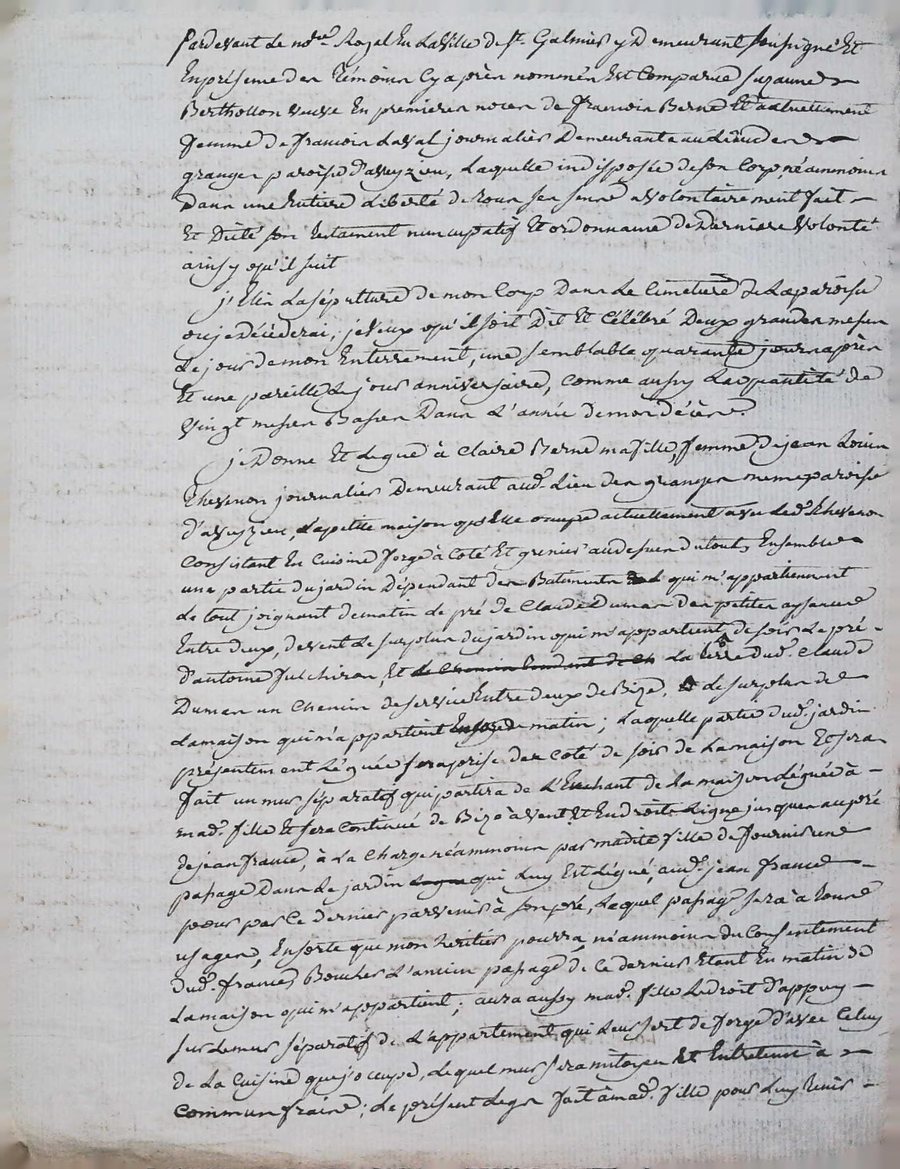 Pardevant le nore. Royal En La Ville de St. Galmier y Demeurant soussigné Et
En présence des Témoins Cy après nommés Est Comparue Suzanne
Berthollon veuve En premieres noces de francois Berne Et actuellement
femme de francois Laval journalier Demeurante au Lieu des
granges paroisse d'aveyzieu, Laquelle indisposée de son Corp, néammoins
Dans une Entiere Liberté de tous ses sens a volontairement fait
Et Dicté son testament nuncupatif Et ordonnance de Derniere Volonté
ainsy qu'il suit
j'Elis La sépulture de mon Corp Dans Le Cimetiere de La paroisse
ou je Décéderai; je veux qu'il soit Dit Et Célébré Deux grandes messes
Le jour de mon Enterrement, une semblable quarante jours après
Et une pareille Le jour anniversaire, comme aussy La quantité de
Vingt messes Basses Dans L'année de mon décès.
je Donne Et Legue à Claire Berne ma fille, femme de jean Louis
Thevenon journalier Demeurant aud. Lieu des granges meme paroisse
d'aveyzieu, La petite maison qu'Elle occupe actuellement avec Led. Thevenon
Consistant En Cuisine forge à Coté Et grenier au dessus du tout, Ensemble
une partie du jardin Dépendant des Batiments qui m'appartiennent
Le tout joignant de matin Le pré de Claude Dumas des petites aysances
Entre deux, de vent Le surplus du jardin qui m'appartient, de soir Le pré
d'antoine fulchiron, Et La terre dud. Claude
Dumas un Chemin de service Entre deux de Bize, Le surplus de
La maison qui m'appartient matin; Laquelle partie dud. jardin
présentement Léguée sera prise du coté de soir de La maison Et sera
fait un mur séparatif qui partira de L'Enchant de La maison Léguée à
mad. fille Et sera Continué de Bize à vent Et En droite Ligne jusques au pré
de jean france, à La Charge néammoins par madite fille de fournir une
passage Dans Le jardin qui Luy Est Légué, aud. jean france
pour par Ce dernier parvenir à son pré, Lequel passage sera à tous
usages, Ensorte que mon heritier pourra néammoins du Consentement
dud. france, Boucher L'ancien passage de Ce dernier Etant En matin de
La maison qui m'appartient; aura aussy mad. fille Le droit d'appuy
sur Le mur séparatif de L'appartement qui Leur sert de forge d'avec Celuy
de La Cuisine que j'occupe, Lequel mur sera mitoyen Et Entretenu à
Commun fraix; Le présent Legs fait à mad. fille pour Luy tenir